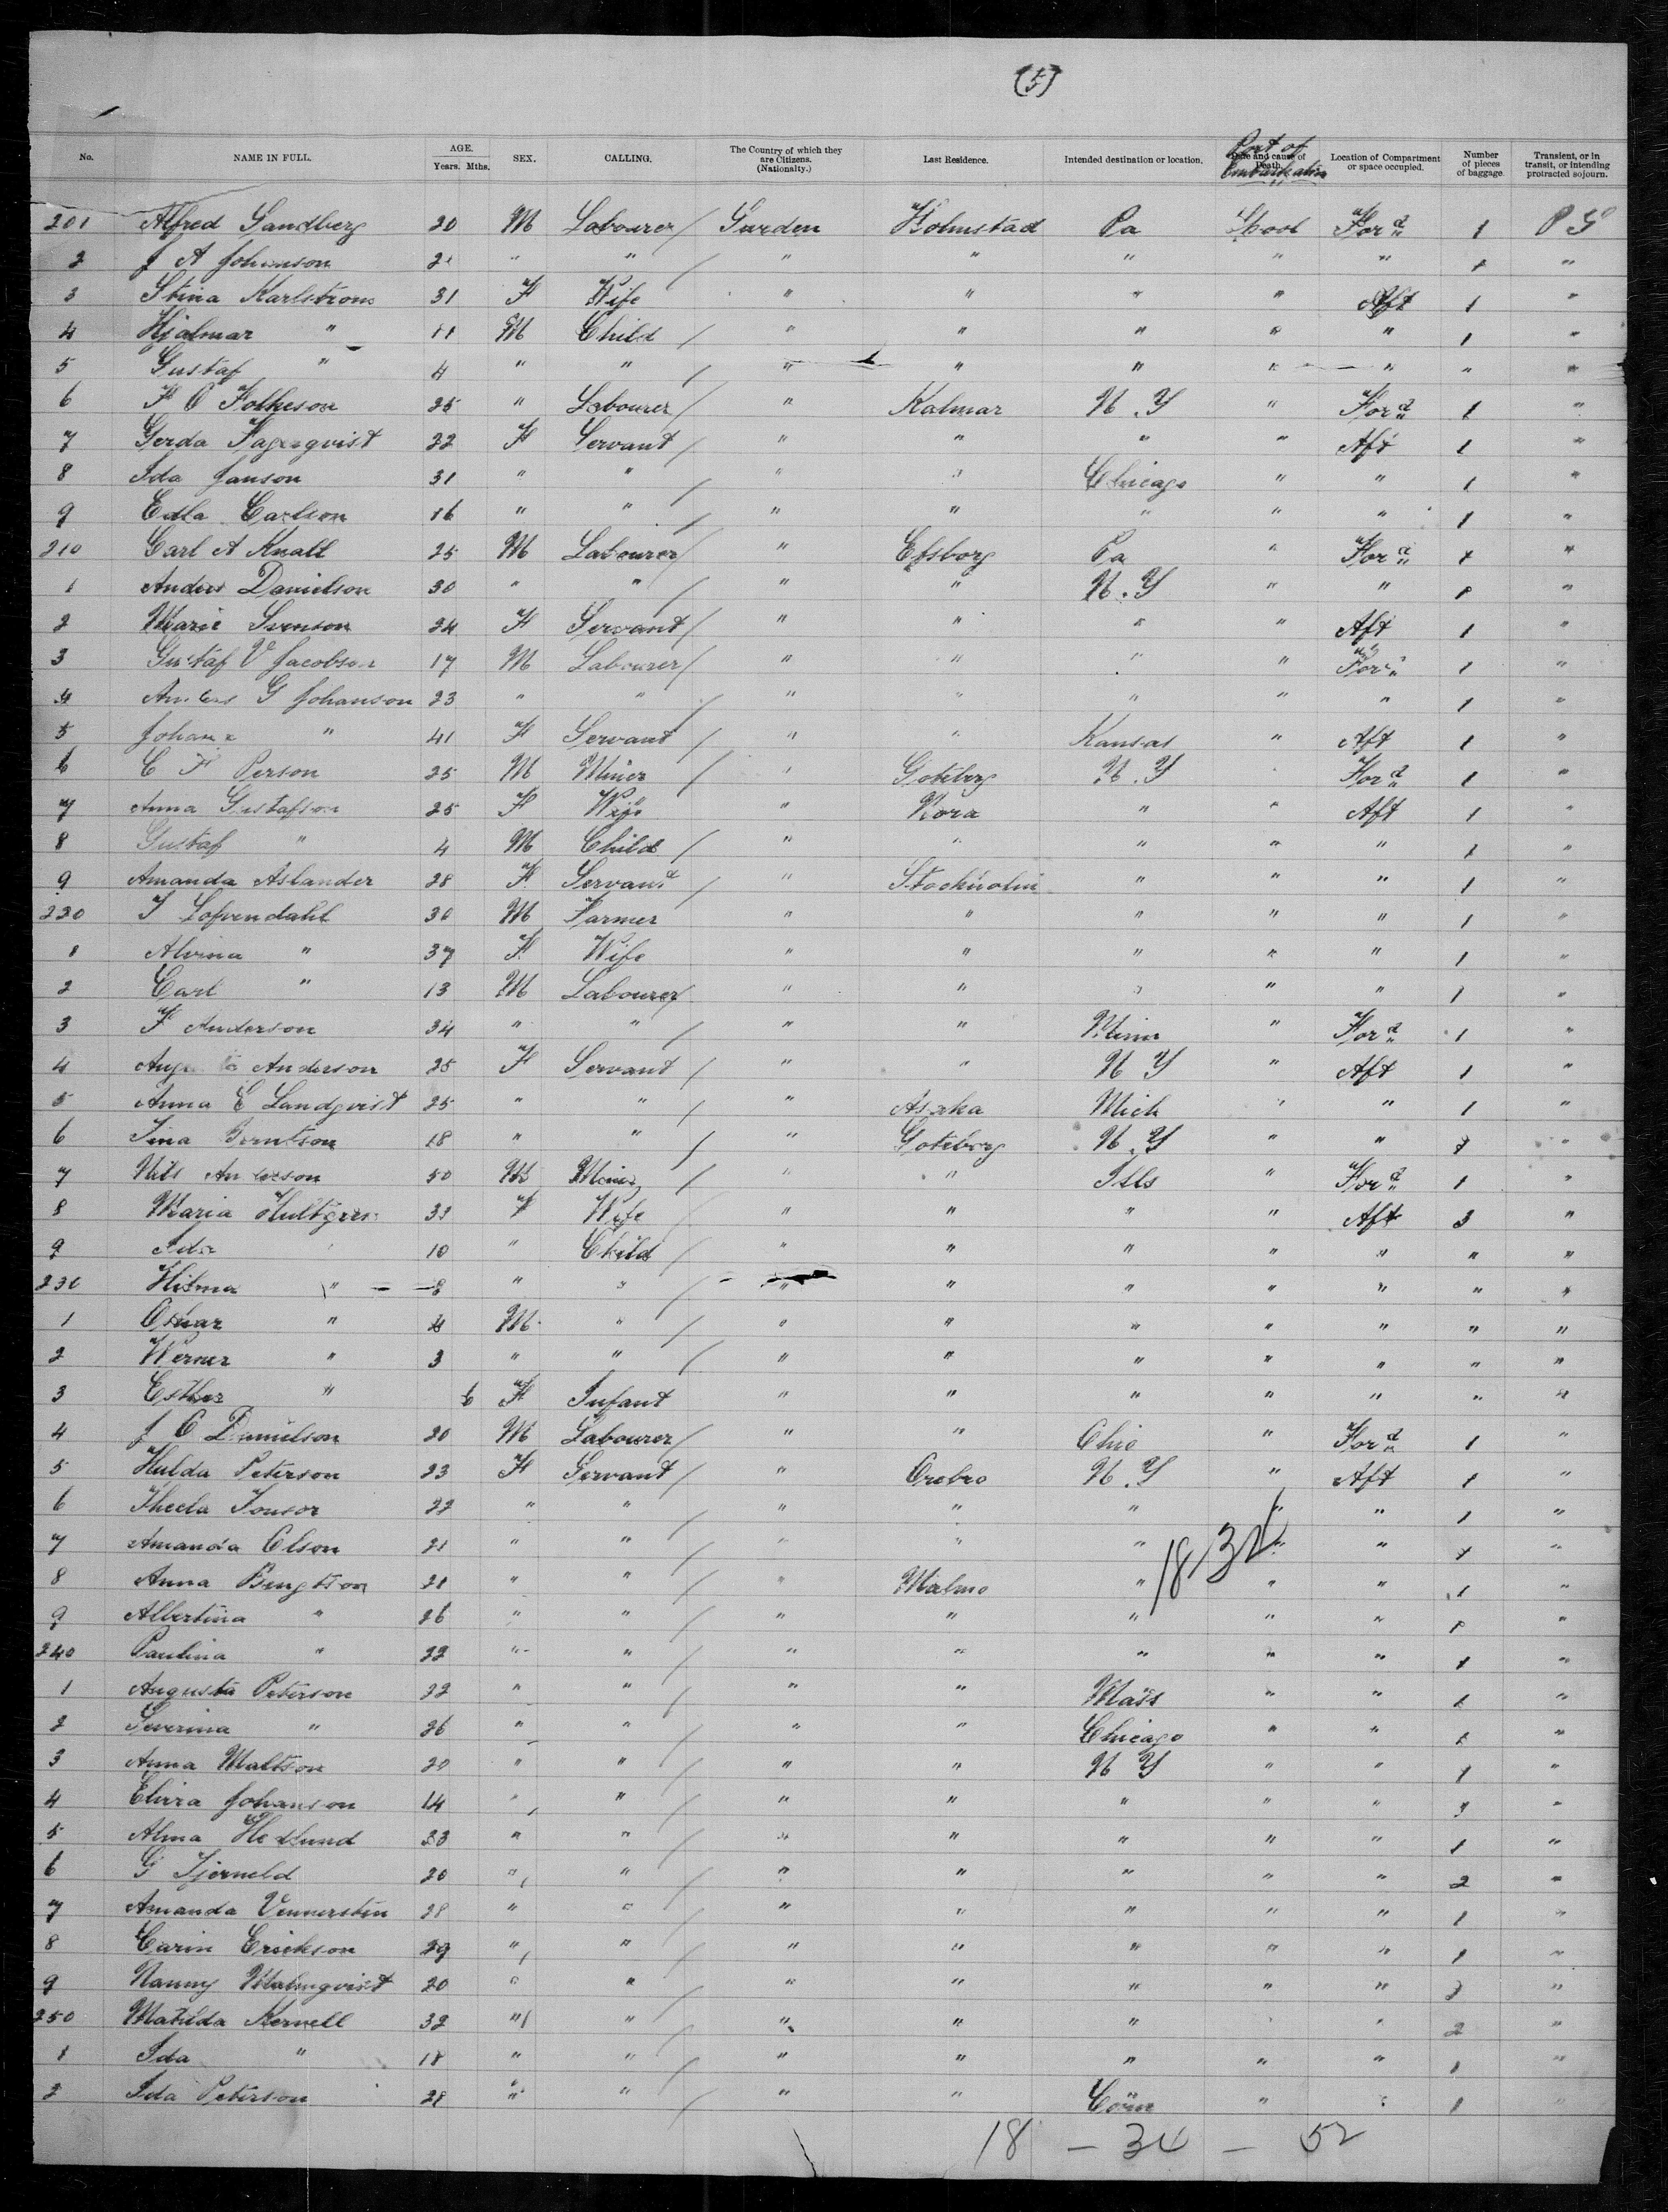 (5)
No. NAME IN FULL. AGE. Years. Mths. SEX. CALLING. The Country of which they are Citizens. (Nationality.) Last Residence. Intended destination or location. Date and cause of Death. Port of Embarkation Location of Compartment or space occupied. Number of pieces of baggage. Transient, or in transit, or intending protracted sojourn.
201 Alfred Sandberg 20 M Labourer / Sweden Holmstad Pa L'pool For d 1 P S
2 J A Johanson 21 " " / " " " " " 1 "
3 Stina Karlstrom 31 F Wife " " " " Aft 1 "
4 Hjalmar " 11 M Child / " " " " " 1 "
5 Gustaf " 4 " " / " " " " " " "
6 F O Folkeson 25 " Labourer / " Kalmar N.Y " For d 1 "
7 Gerda Fagerqvist 22 F Servant / " " " " Aft 1 "
8 Ida Janson 31 " " / " " Chicago " " 1 "
9 Edla Carlson 16 " " / " " " " " 1 "
210 Carl A Knall 25 M Labourer / " Efsborg Pa " For d 1 "
1 Anders Danielson 30 " " / " " N.Y " " 1 "
2 Marie Svenson 24 F Servant / " " " " Aft 1 "
3 Gustaf V Jacobson 17 M Labourer / " " " " For d 1 "
4 Anders G Johanson 23 " " / " " " " " 1 "
5 Johana " 41 F Servant / " " Kansas " Aft 1 "
6 C F Person 25 M Miner / " Goteberg N.Y " For d 1 "
7 Anna Gustafson 25 F Wife " Nora " " Aft 1 "
8 Gustaf " 4 M Child / " " " " " 1 "
9 Amanda Aslander 28 F Servant / " Stockholm " " " 1 "
220 J Lofvendahl 36 M Farmer " " " " " 1 "
1 Alvina " 37 F Wife " " " " " 1 "
2 Carl " 13 M Labourer / " " " " " 1 "
3 F Anderson 34 " " / " " Minn " For d 1 "
4 Augusta Anderson 25 F Servant / " " N Y " Aft 1 "
5 Anna E Landqvist 25 " " / " Mich " " 1 "
6 Berntson 18 " " / " Goteborg N.Y " " 1 "
7 Nils Anderson 50 M Miner / " " Ills " For d 1 "
8 Maria Hultgren 33 F Wife / " " " " Aft 3 "
9 Ida " 10 " Child / " " " " " " "
230 Hilma " 8 " " / " " " " " " "
1 Oskar " 4 M " / " " " " " " "
2 Werner " 3 " " / " " " " " " "
3 Esther " 6 F Infant " " " " " " "
4 J O Danielson 20 M Labourer / " " Ohio " For d 1 "
5 Hulda Peterson 23 F Servant / " Orebro N.Y " Aft 1 "
6 Theela 22 " " / " " " " " 1 "
7 Amanda Olson 21 " " / " " " " " 1 "
18 34
8 Anna Bengtson 21 " " / " Malmo " " " 1 "
9 Albertina " 26 " " / " " " " " 1 "
240 Paulina " 22 " " / " " " " " 1 "
1 Augusta Peterson 22 " " / " " Mass " " 1 "
2 Severina " 26 " " / " " Chicago " " 1 "
3 Anna Maltson 20 " " / " " N Y " " 1 "
4 Elvira Johanson 14 " " / " " " " " "
5 Alma Hedlund 23 " " / " " " " " 1 "
6 G Tjerneld 20 " " / " " " " " 2 "
7 Amanda Vennersten 28 " " / " " " " " 1 "
8 Carin Erickson 29 " " / " " " " " 1 "
9 Nanny Malmqvist 20 " " / " " " " " "
250 Matilda Kernell 32 " " / " " " " " 2 "
1 Ida " 18 " " / " " " " " 1 "
2 Ida Peterson 28 " " / " " Conn " " 1 "
18 - 34 - 52